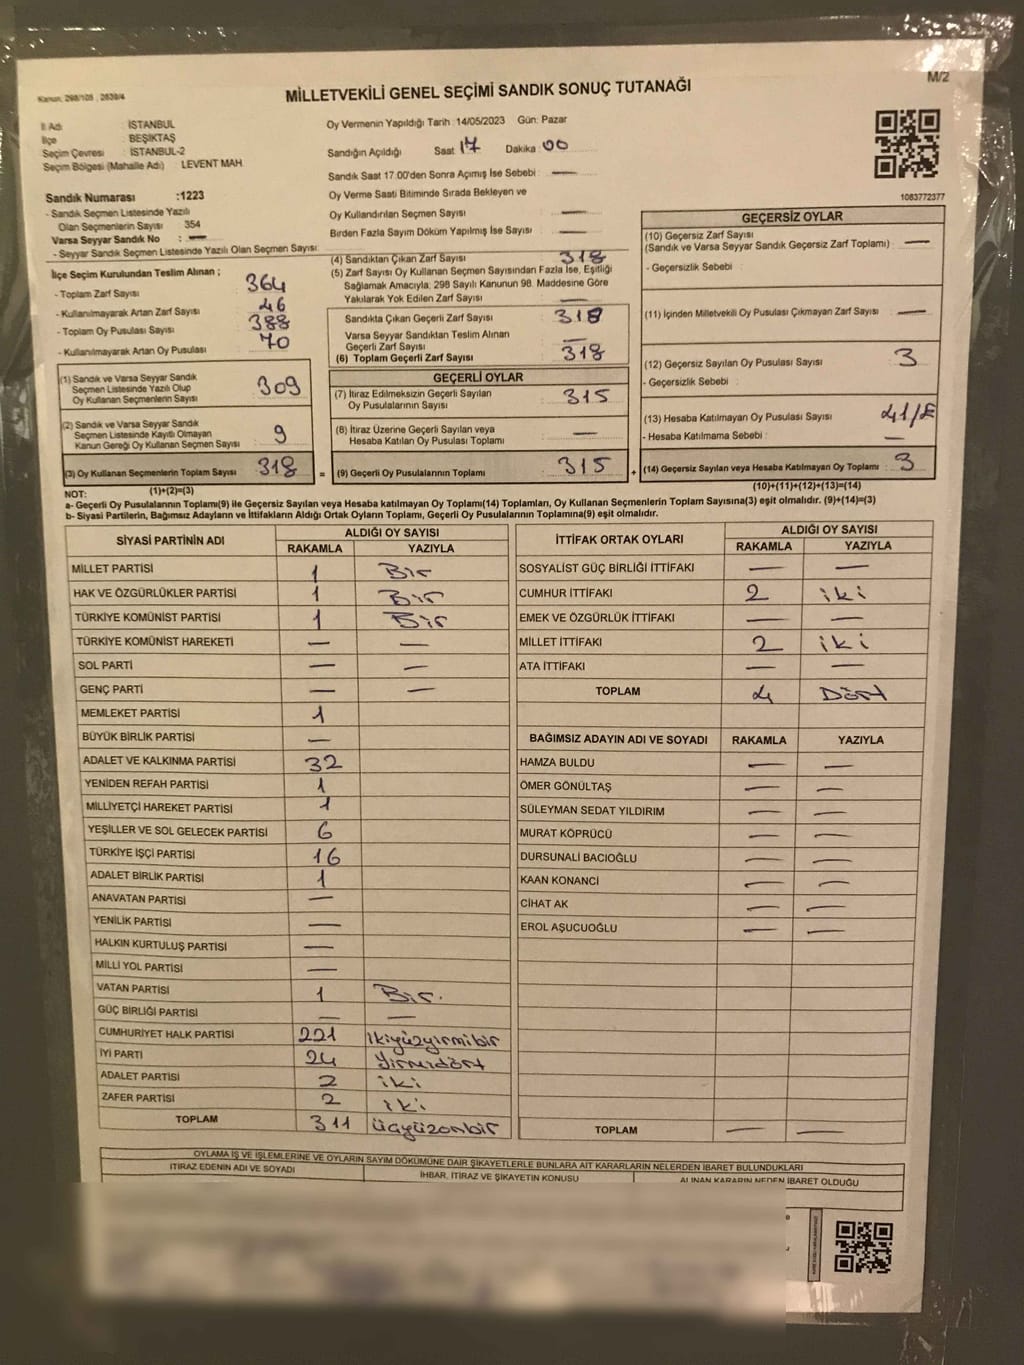 M/2
Kanun: 298/105 ; 2839/4
MİLLETVEKİLİ GENEL SEÇİMİ SANDIK SONUÇ TUTANAĞI
İl Adı : İSTANBUL
İlçe : BEŞİKTAŞ
Seçim Çevresi : İSTANBUL-2
Seçim Bölgesi (Mahalle Adı) : LEVENT MAH.
Sandık Numarası :1223
- Sandık Seçmen Listesinde Yazılı
Olan Seçmenlerin Sayısı : 354
Varsa Seyyar Sandık No : —
- Seyyar Sandık Seçmen Listesinde Yazılı Olan Seçmen Sayısı:
Oy Vermenin Yapıldığı Tarih :14/05/2023 Gün: Pazar
Sandığın Açıldığı Saat 17 Dakika :00
Sandık Saat 17.00'den Sonra Açımış İse Sebebi : —
Oy Verme Saati Bitiminde Sırada Bekleyen ve
Oy Kullandırılan Seçmen Sayısı : —
Birden Fazla Sayım Döküm Yapılmış İse Sayısı : —
1083772377
İlçe Seçim Kurulundan Teslim Alınan ;
- Toplam Zarf Sayısı : 364
- Kullanılmayarak Artan Zarf Sayısı : 46
- Toplam Oy Pusulası Sayısı : 388
- Kullanılmayarak Artan Oy Pusulası : 70
(1) Sandık ve Varsa Seyyar Sandık
Seçmen Listesinde Yazılı Olup
Oy Kullanan Seçmenlerin Sayısı : 309
(2) Sandık ve Varsa Seyyar Sandık
Seçmen Listesinde Kayıtlı Olmayan
Kanun Gereği Oy Kullanan Seçmen Sayısı : 9
(3) Oy Kullanan Seçmenlerin Toplam Sayısı : 318
(1)+(2)=(3)
(4) Sandıktan Çıkan Zarf Sayısı : 318
(5) Zarf Sayısı Oy Kullanan Seçmen Sayısından Fazla İse, Eşitliği
Sağlamak Amacıyla; 298 Sayılı Kanunun 98. Maddesine Göre
Yakılarak Yok Edilen Zarf Sayısı : —
Sandıkta Çıkan Geçerli Zarf Sayısı : 318
Varsa Seyyar Sandıktan Teslim Alınan
Geçerli Zarf Sayısı : —
(6) Toplam Geçerli Zarf Sayısı : 318
GEÇERLİ OYLAR
(7) İtiraz Edilmeksizin Geçerli Sayılan
Oy Pusulalarının Sayısı : 315
(8) İtiraz Üzerine Geçerli Sayılan veya
Hesaba Katılan Oy Pusulası Toplamı : —
= (9) Geçerli Oy Pusulalarının Toplamı : 315 +
GEÇERSİZ OYLAR
(10) Geçersiz Zarf Sayısı
(Sandık ve Varsa Seyyar Sandık Geçersiz Zarf Toplamı) : —
- Geçersizlik Sebebi :
(11) İçinden Milletvekili Oy Pusulası Çıkmayan Zarf Sayısı : —
(12) Geçersiz Sayılan Oy Pusulası Sayısı : 3
- Geçersizlik Sebebi :
(13) Hesaba Katılmayan Oy Pusulası Sayısı :
- Hesaba Katılmama Sebebi : —
(14) Geçersiz Sayılan veya Hesaba Katılmayan Oy Toplamı : 3
(10)+(11)+(12)+(13)=(14)
NOT:
a- Geçerli Oy Pusulasının Toplamı(9) ile Geçersiz Sayılan veya Hesaba katılmayan Oy Toplamı(14) Toplamları, Oy Kullanan Seçmenlerin Toplam Sayısına(3) eşit olmalıdır. (9)+(14)=(3)
b- Siyasi Partilerin, Bağımsız Adayların ve İttifakların Aldığı Ortak Oyların Toplamı, Geçerli Oy Pusulalarının Toplamına(9) eşit olmalıdır.
SİYASİ PARTİNİN ADI ALDIĞI OY SAYISI
RAKAMLA YAZIYLA
MİLLET PARTİSİ 1 Bir
HAK VE ÖZGÜRLÜKLER PARTİSİ 1 Bir
TÜRKİYE KOMÜNİST PARTİSİ 1 Bir
TÜRKİYE KOMÜNİST HAREKETİ — —
SOL PARTİ — —
GENÇ PARTİ — —
MEMLEKET PARTİSİ 1
BÜYÜK BİRLİK PARTİSİ —
ADALET VE KALKINMA PARTİSİ 32
YENİDEN REFAH PARTİSİ 1
MİLLİYETÇİ HAREKET PARTİSİ 1
YEŞİLLER VE SOL GELECEK PARTİSİ 6
TÜRKİYE İŞÇİ PARTİSİ 16
ADALET BİRLİK PARTİSİ 1
ANAVATAN PARTİSİ —
YENİLİK PARTİSİ —
HALKIN KURTULUŞ PARTİSİ —
MİLLİ YOL PARTİSİ —
VATAN PARTİSİ 1 Bir.
GÜÇ BİRLİĞİ PARTİSİ — —
CUMHURİYET HALK PARTİSİ 221 ikiyüzyirmibir
İYİ PARTİ 24 Yirmidört
ADALET PARTİSİ 2 iki
ZAFER PARTİSİ 2 iki
TOPLAM 311 üçyüzonbir
İTTİFAK ORTAK OYLARI ALDIĞI OY SAYISI
RAKAMLA YAZIYLA
SOSYALİST GÜÇ BİRLİĞİ İTTİFAKI — —
CUMHUR İTTİFAKI 2 iki
EMEK VE ÖZGÜRLÜK İTTİFAKI — —
MİLLET İTTİFAKI 2 iki
ATA İTTİFAKI — —
TOPLAM 4 Dört
BAĞIMSIZ ADAYIN ADI VE SOYADI RAKAMLA YAZIYLA
HAMZA BULDU — —
ÖMER GÖNÜLTAŞ — —
SÜLEYMAN SEDAT YILDIRIM — —
MURAT KÖPRÜCÜ — —
DURSUNALİ BACIOĞLU — —
KAAN KONANCİ — —
CİHAT AK — —
EROL AŞUCUOĞLU — —
TOPLAM — —
OYLAMA İŞ VE İŞLEMLERİNE VE OYLARIN SAYIM DÖKÜMÜNE DAİR ŞİKAYETLERLE BUNLARA AİT KARARLARIN NELERDEN İBARET BULUNDUKLARI
İTİRAZ EDENİN ADI VE SOYADI İHBAR, İTİRAZ VE ŞİKAYETİN KONUSU ALINAN KARARIN NEDEN İBARET OLDUĞU